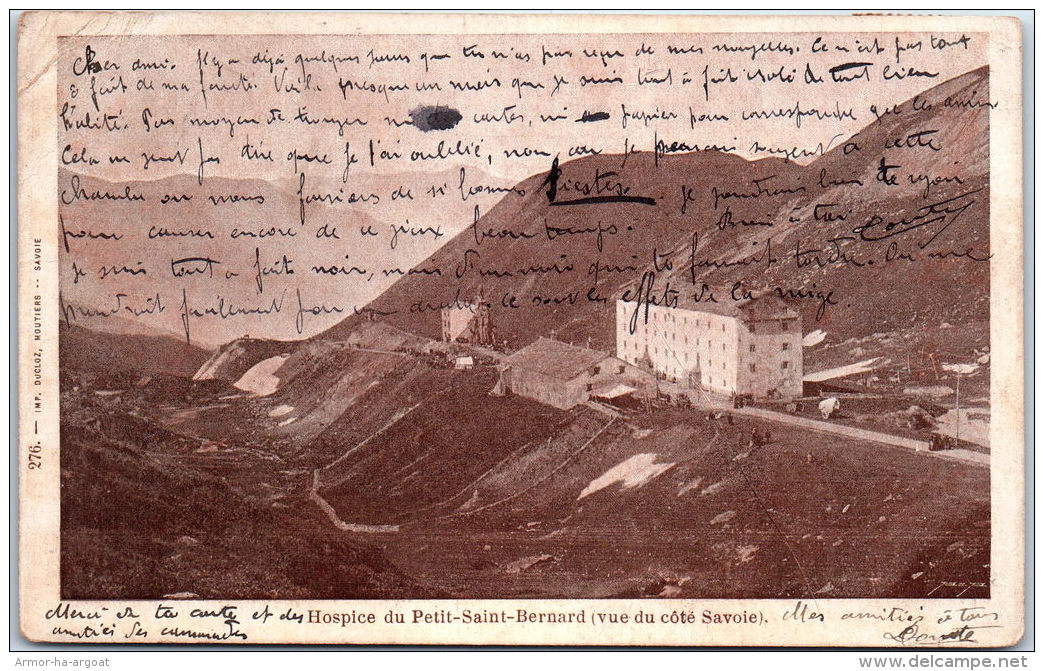 Cher ami. Il y a déjà quelques jours que tu n'as pas reçu de mes nouvelles. Ce n'est pas tout
à fait de ma faute. Voilà presque un mois que je suis tout à fait isolé de tout lieu
habité. Pas moyen de trouver ni cartes, ni papier pour correspondre que ces amis
Cela ne veut pas dire que je t'ai oublié, non, car je pensais souvent à cette
chambre où nous faisions de si bonnes siestes. Je voudrais bien te revoir
pour causer encore de ce vieux beau temps.
je suis tout à fait noir, mais d'un noir qui te ferait tordre. On me
prendrait facilement pour un arabe. ce sont les effets de la neige.
276. — IMP. DUCLOZ, MOUTIERS -- SAVOIE
Merci de ta carte et des
amitiés des camarades
Hospice du Petit-Saint-Bernard (vue du côté Savoie).
Mes amitiés à tous
Armor-ha-argoat
delcampe.net